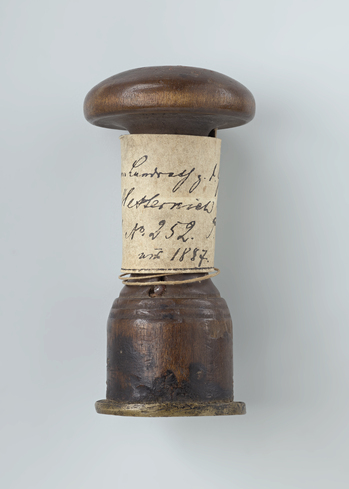 Landrath z. D.
Metternich
No. 252.
1887.